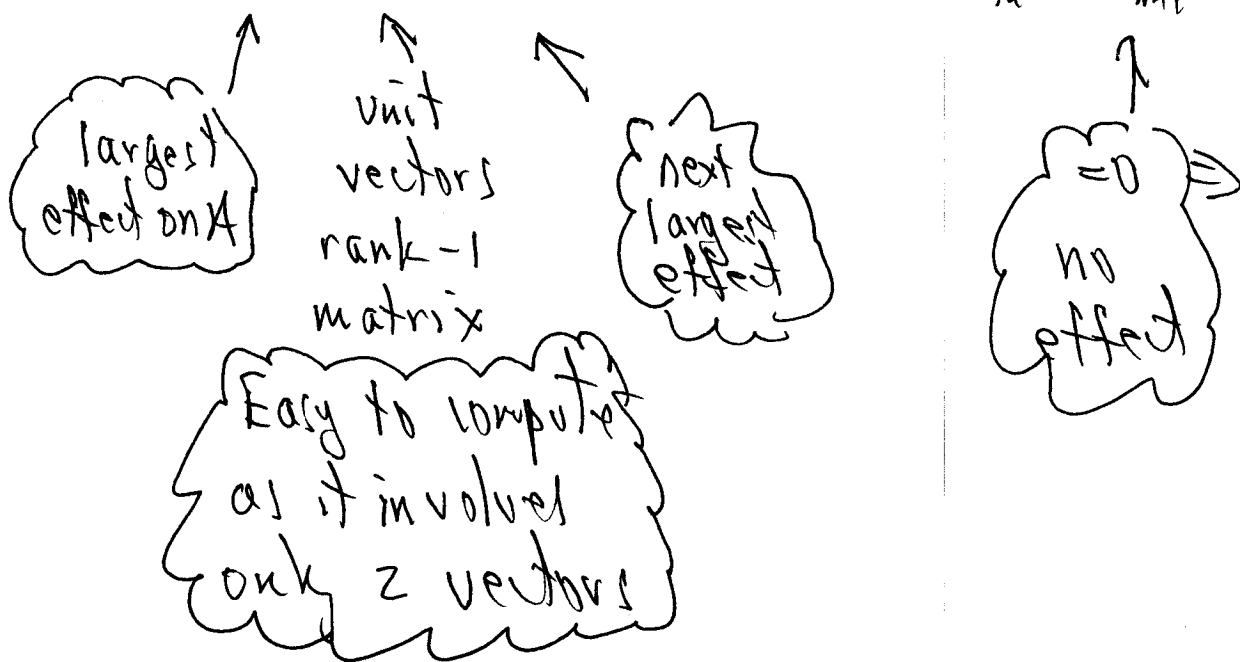 largest
effect on A
unit
vectors
rank-1
matrix
next
largest
effect
=0
no
effect
Easy to compute
as it involves
only 2 vectors